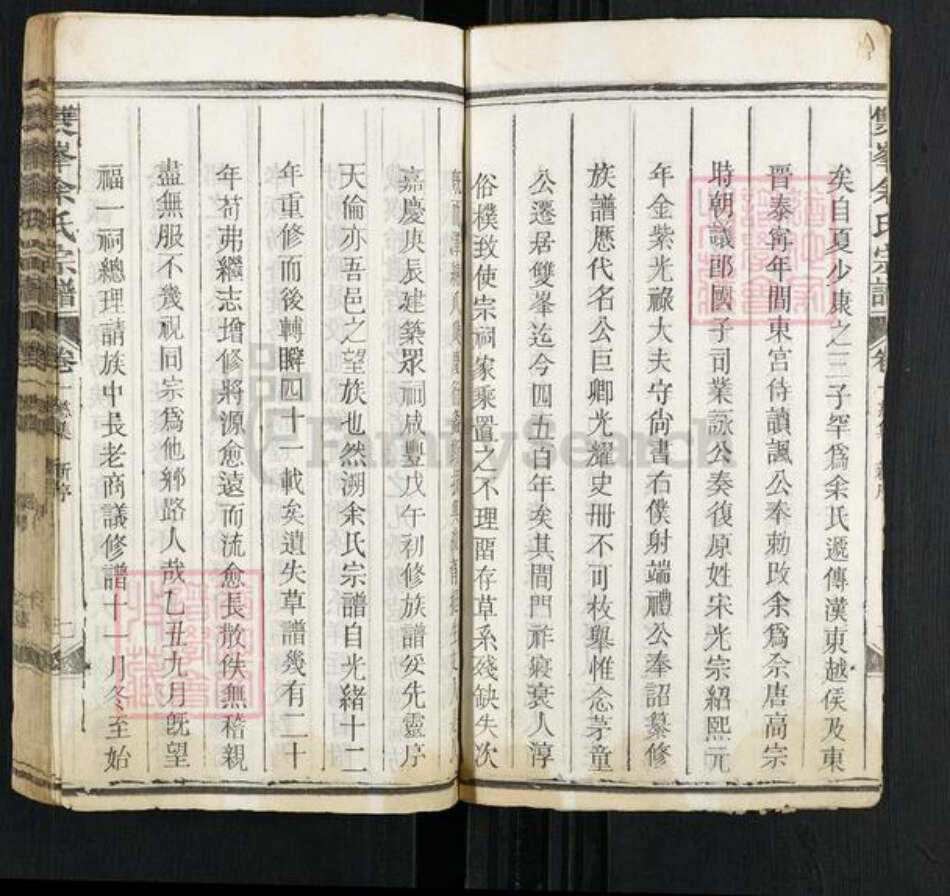 雙峯余氏宗譜
矣自夏少康之三子罕爲余氏遞傳漢東越侯及東
晉泰寧年間東宮侍讀諷公奉勅改余爲佘唐高宗
時朝議郎國子司業詠公奏復原姓宋光宗紹熙元
年金紫光祿大夫守尙書右僕射端禮公奉詔纂修
族譜歷代名公巨卿光耀史冊不可枚舉惟念茅童
公遷居雙峯迄今四五百年矣其間門祚寖衰人淳
俗樸致使宗祠家乘置之不理畱存草系殘缺失次
嘉慶庚辰建築眾祠咸豐戊午初修族譜妥先靈序
天倫亦吾邑之望族也然溯余氏宗譜自光緒十二
年重修而後轉瞬四十一載矣遺失草譜幾有二十
年苟弗繼志增修將源愈遠而流愈長散佚無稽親
盡無服不幾視同宗爲他鄉路人哉乙丑九月旣望
福一祠總理請族中長老商議修譜十一月冬至始
雙峯余氏宗譜
卷一
新序
FamilySearch